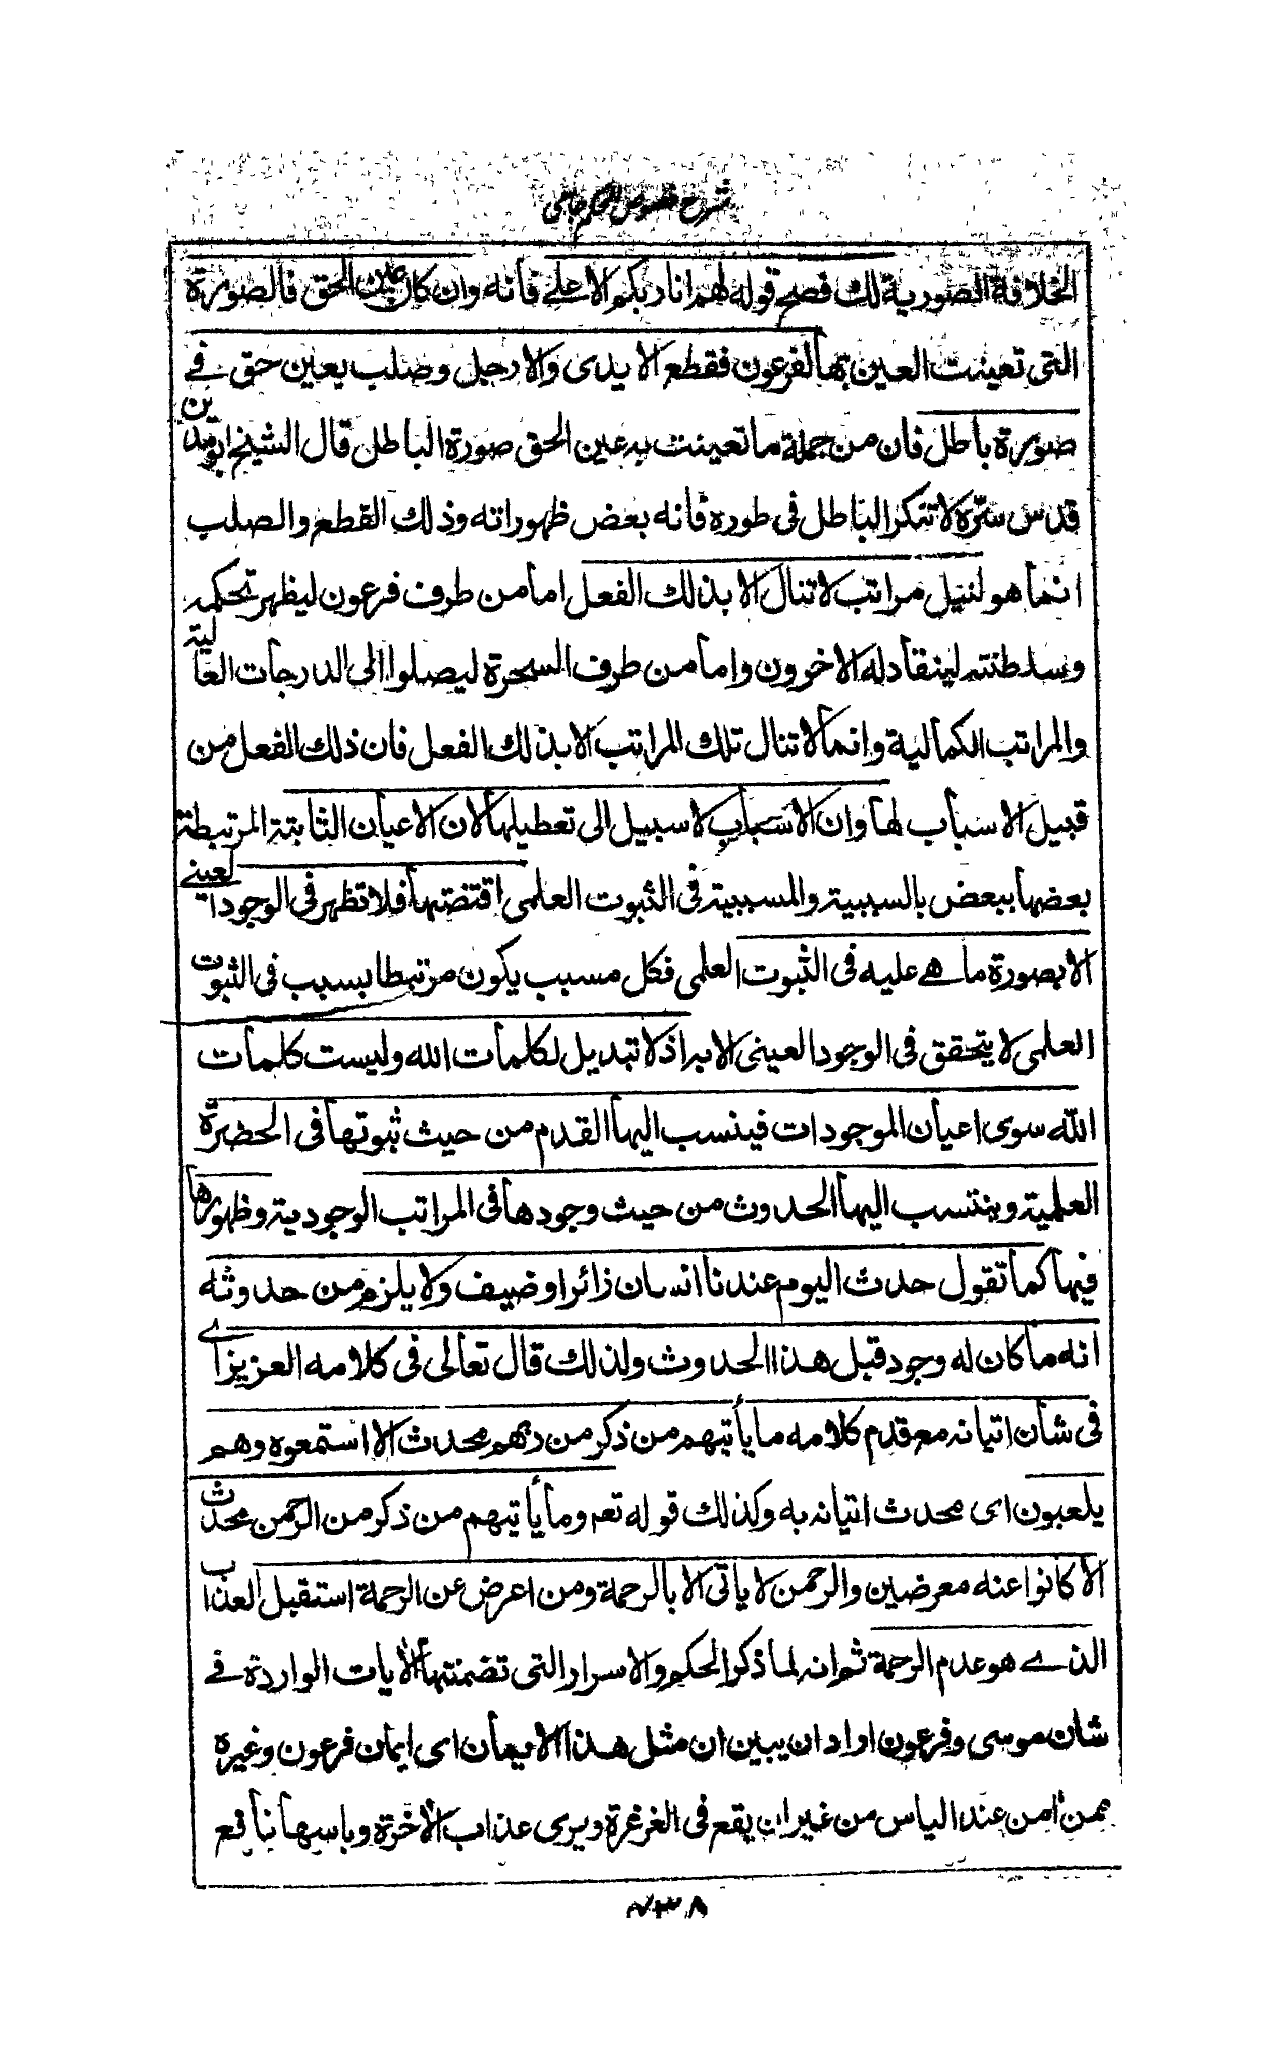 شرح فصوص الحكم جامی
الخلافة الصورية لك فصح قوله لهم انا ربكم الاعلے فانه وان كان عين الحق فالصورة
التى تعينت العين بها لفرعون فقطع الايدى والارجل وصلب بعين حق فے
صورة باطل فان من جملة ما تعينت به عين الحق صورة الباطل قال الشيخ ابو مدين
قدس سرّه لا تنكر الباطل فى طوره فانه بعض ظهوراته وذلك القطع والصلب
انما هو لنيل مراتب لا تنال الا بذلك الفعل اما من طرف فرعون ليظهر تحكمه
وسلطنته لينقاد له الاخرون واما من طرف السحرة ليصلوا الى الدرجات العالية
والمراتب الكمالية وانما لا تنال تلك المراتب الا بذلك الفعل فان ذلك الفعل من
قبيل الاسباب لها وان الاسباب لا سبيل الى تعطيلها لان الاعيان الثابتة المرتبطة
بعضها ببعض بالسببية والمسببية فى الثبوت العلمى اقتضتها فلا تظهر فى الوجود العينے
الا بصورة ما هے عليه فى الثبوت العلمى فكل مسبب يكون مرتبطا بسبب فى الثبوت
العلمى لا يتحقق فى الوجود العينى الا به اذ لا تبديل لكلمات الله وليست كلمات
الله سوى اعيان الموجودات فينسب اليها القدم من حيث ثبوتها فى الحضرة
العلمية وينتسب اليها الحدوث من حيث وجودها فى المراتب الوجودية وظهورها
فيها كما تقول حدث اليوم عندنا انسان زائر او ضيف ولا يلزم من حدوثه
انه ما كان له وجود قبل هذا الحدوث ولذلك قال تعالى فى كلامه العزيز اے
فى شأن اتيانه مع قدم كلامه ما يأتيهم من ذكر من ربهم محدث الا استمعوه وهم
يلعبون اى محدث اتيانه به وكذلك قوله تعم وما يأتيهم من ذكر من الرحمن محدث
الا كانوا عنه معرضين والرحمن لا ياتى الا بالرحمة ومن اعرض عن الرحمة استقبل العذاب
الذے هو عدم الرحمة ثم انه لما ذكر الحكم والاسرار التى تضمنتها الايات الواردة فے
شان موسى وفرعون اراد ان يبين ان مثل هذا الايمان اى ايمان فرعون وغيره
ممن امن عند الياس من غير ان يقع فى الغرغرة ويرى عذاب الاخرة وباسها نافع